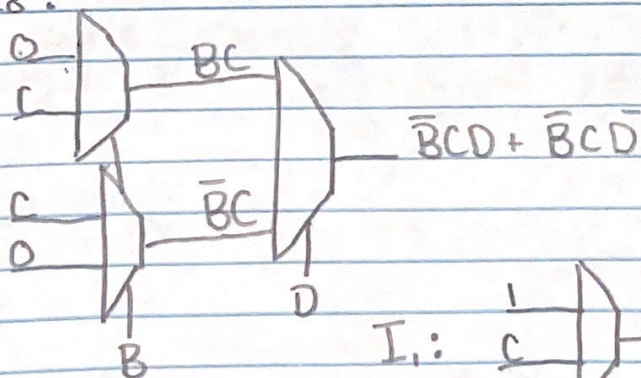 0
C
BC
B̅CD + B̅CD̅
C
0
B̅C
D
B
I₁:
1
C